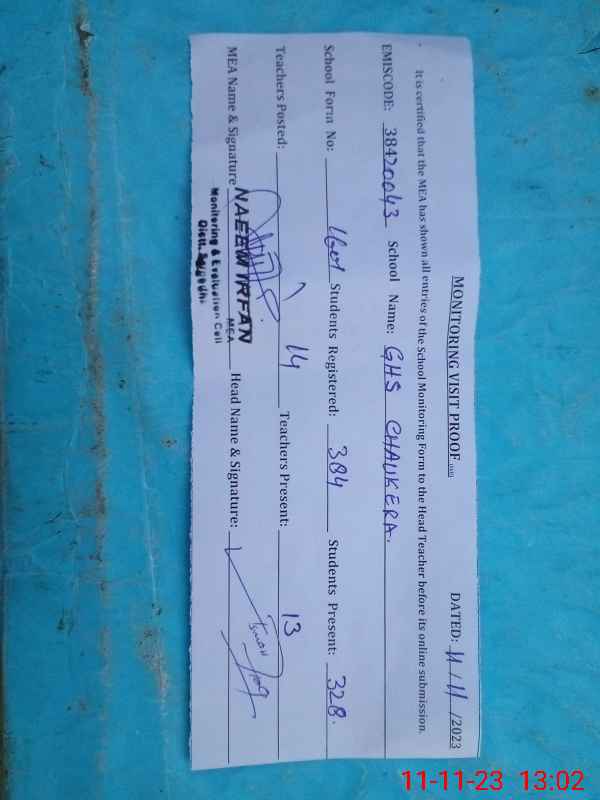 MONITORING VISIT PROOF DATED: 11/11/2023
It is certified that the MEA has shown all entries of the School Monitoring Form to the Head Teacher before its online submission.
EMISCODE: 38420043 School Name: GHS CHAUKERA.
School Form No: Students Registered: 384 Students Present: 328.
Teachers Posted: 14 Teachers Present: 13
MEA Name & Signature Head Name & Signature:
NAEEM IRFAN
MEA
Monitoring & Evaluation Cell
Distt. Sargodha
11-11-23 13:02